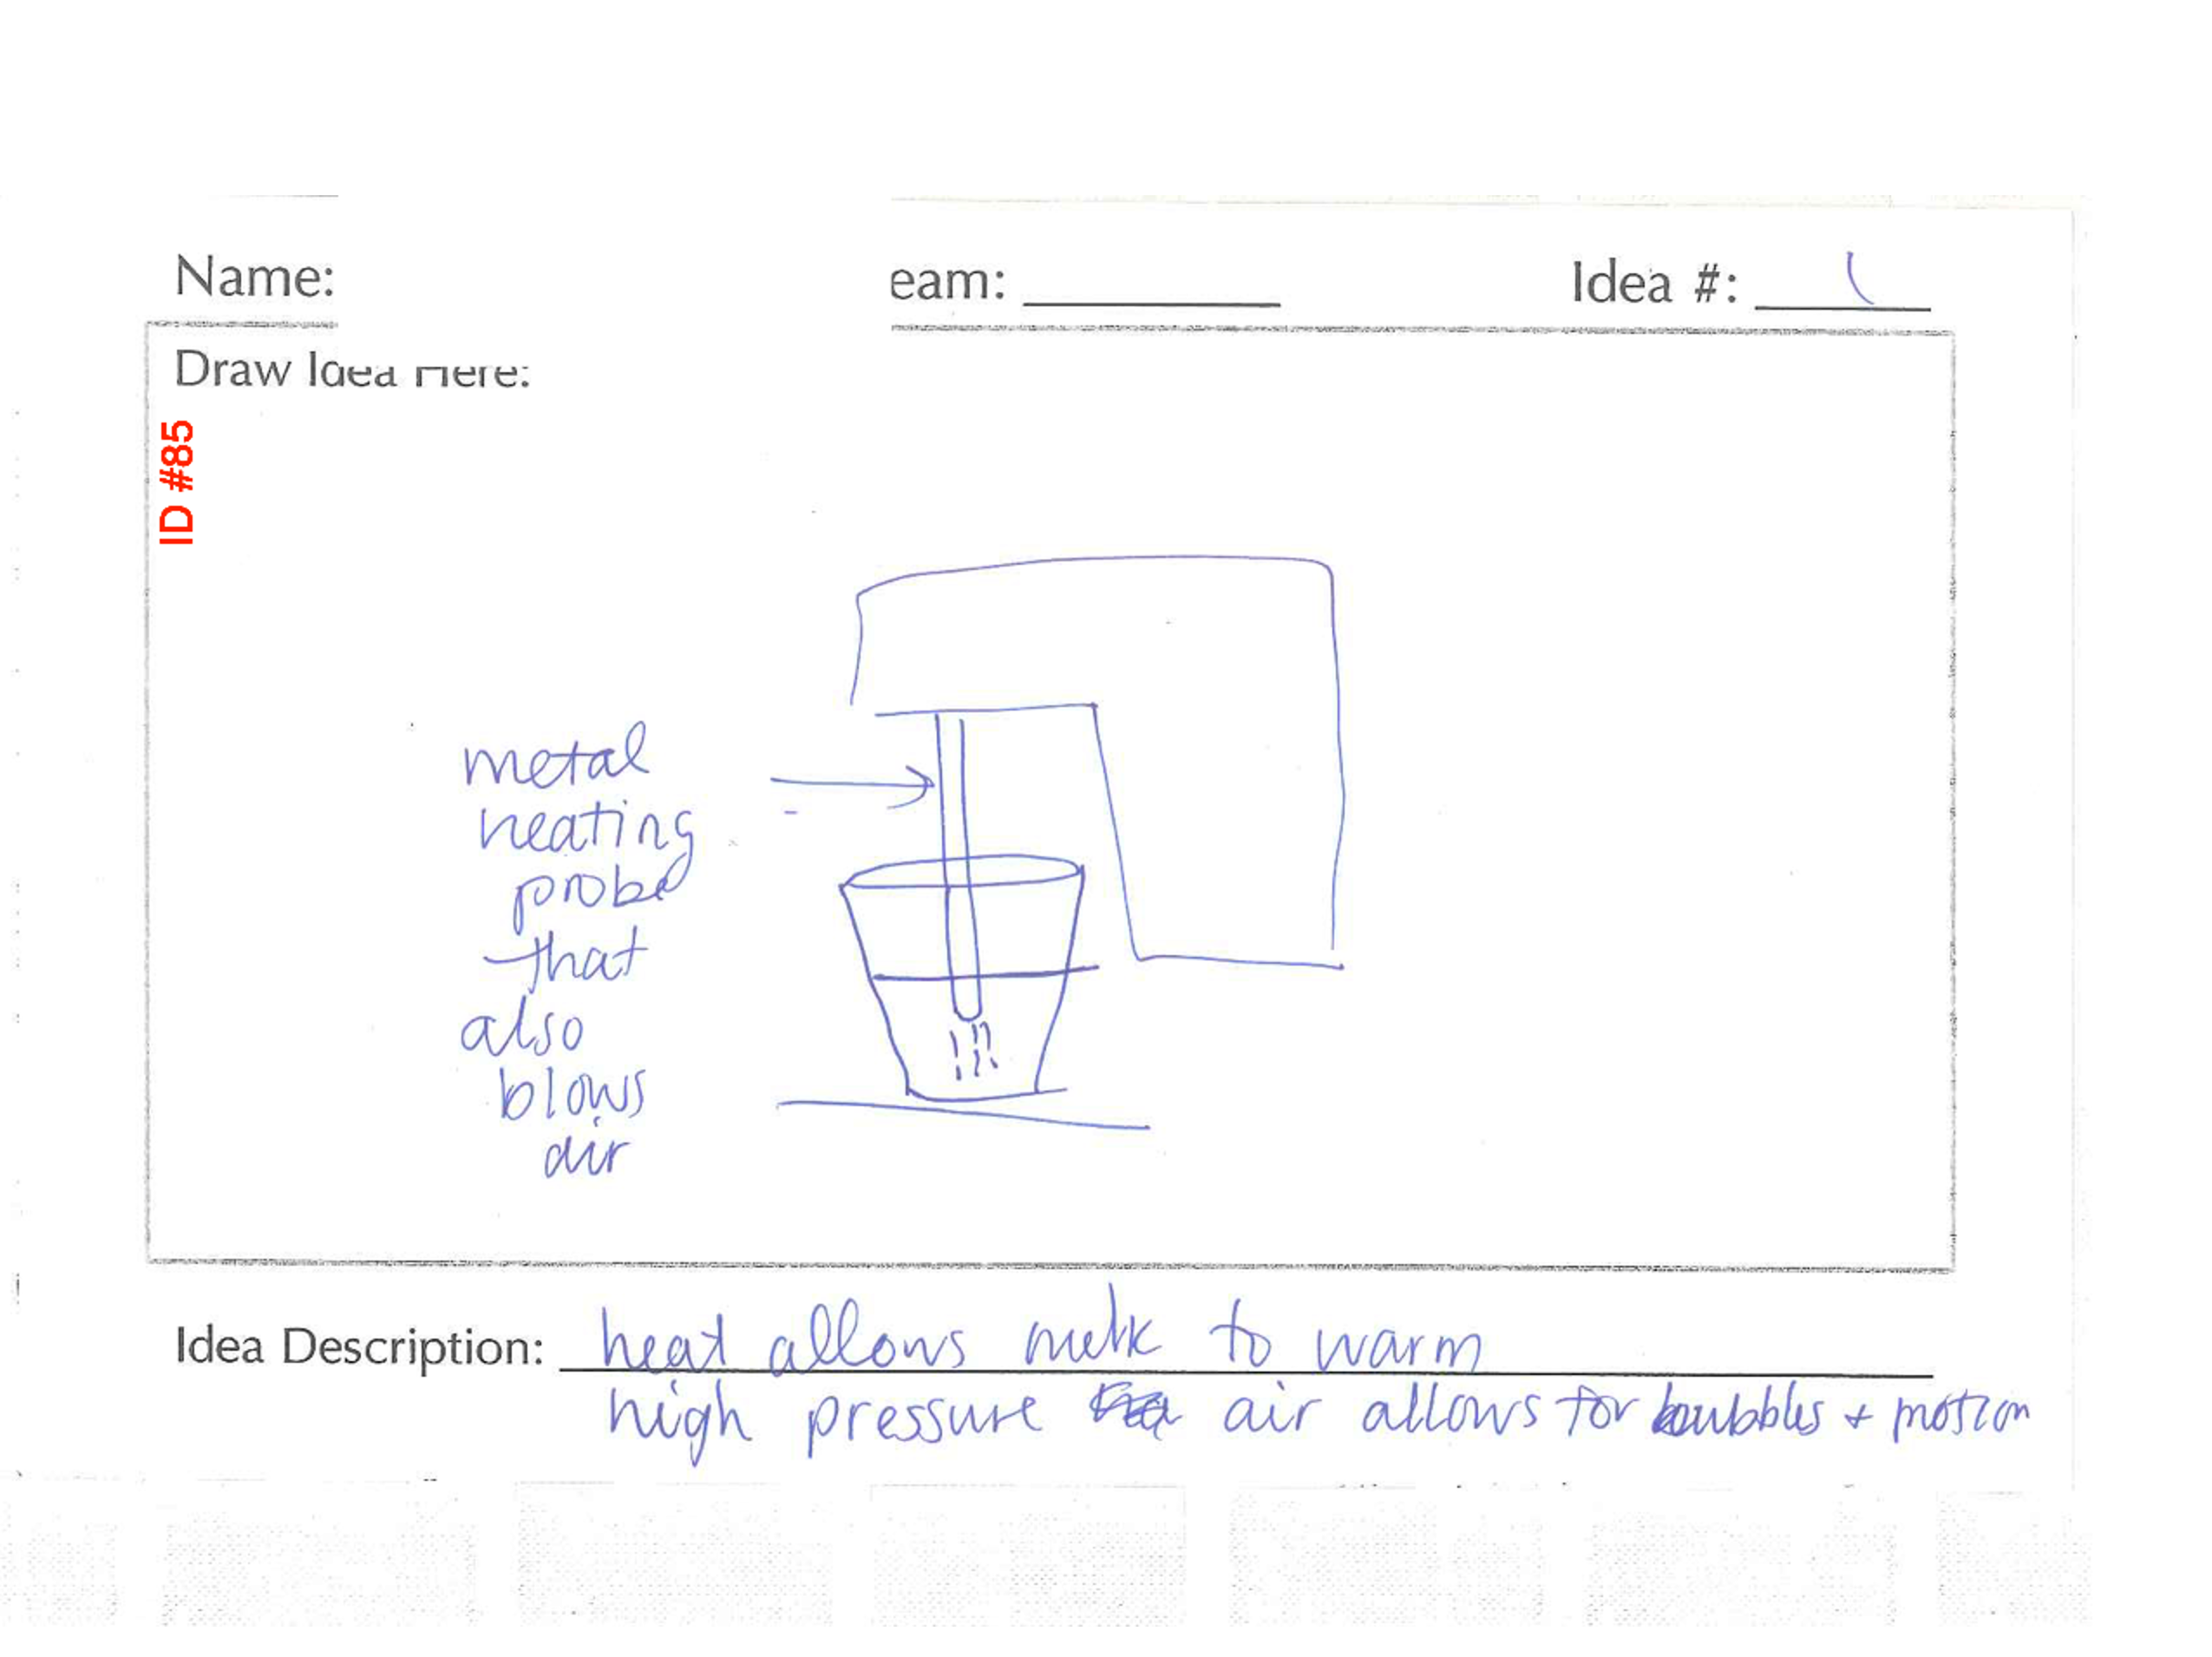 Name:
eam:
Idea #: 1
Draw Idea Here:
ID #85
metal
heating
probe
that
also
blows
air
Idea Description: heat allows milk to warm
high pressure air allows for bubbles + motion